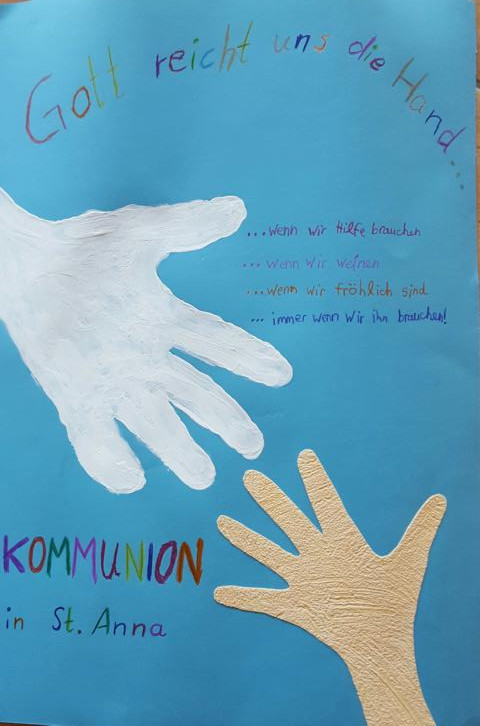 Gott reicht uns die Hand...
...wenn wir Hilfe brauchen
...wenn wir weinen
...wenn wir fröhlich sind
... immer wenn wir ihn brauchen!
KOMMUNION
in St. Anna